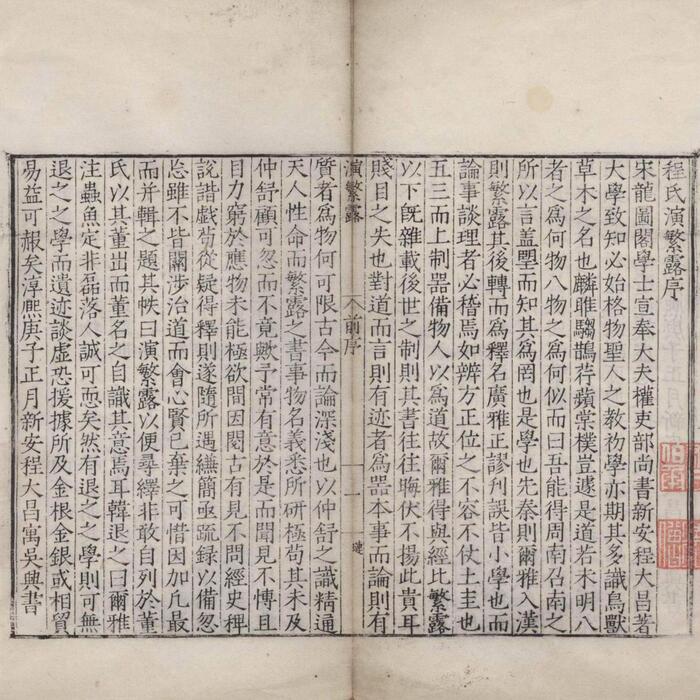 程氏演繁露序
宋龍圖閣學士宣奉大夫權吏部尚書新安程大昌著
大學致知必始格物聖人之教初學亦期其多識鳥獸
草木之名也麟雎騶鵲荇蘋棠樸豈遽是道若未明八
者之爲何物八物之爲何似而曰吾能得周南召南之
所以言蓋望而知其爲罔也是學也先秦則爾雅入漢
則繁露其後轉而爲釋名廣雅正謬刋誤皆小學也而
論事談理者必稽焉如辨方正位之不容不仗土圭也
五三而上制器備物人以爲道故爾雅得與經比繁露
以下旣雜載後世之制則其書往往晦伏不揚此貴耳
賤目之失也對道而言則有迹者爲器本事而論則有
演繁露 前序 一
質者爲物何可限古今而論深淺也以仲舒之識精通
天人性命而繁露之書事物名義悉所研極苟其未及
仲舒顧可忽而不竟歟予常有意於是而聞見不慱且
目力窮於應物未能極欲間因閱古有見不問經史稗
說諧戲苟從疑得釋則遂隨所遇縑簡亟疏録以備忽
忘雖不皆關渉治道而會心賢已棄之可惜因加凡最
而并輯之題其帙曰演繁露以便尋繹非敢自列於董
氏以其董出而董名之自識其意焉耳韓退之曰爾雅
注蟲魚定非磊落人誠可恧矣然有退之之學則可無
退之之學而遺迹談虛恐援據所及金根金銀或相貿
易益可赧矣淳熈庚子正月新安程大昌寓吳興書